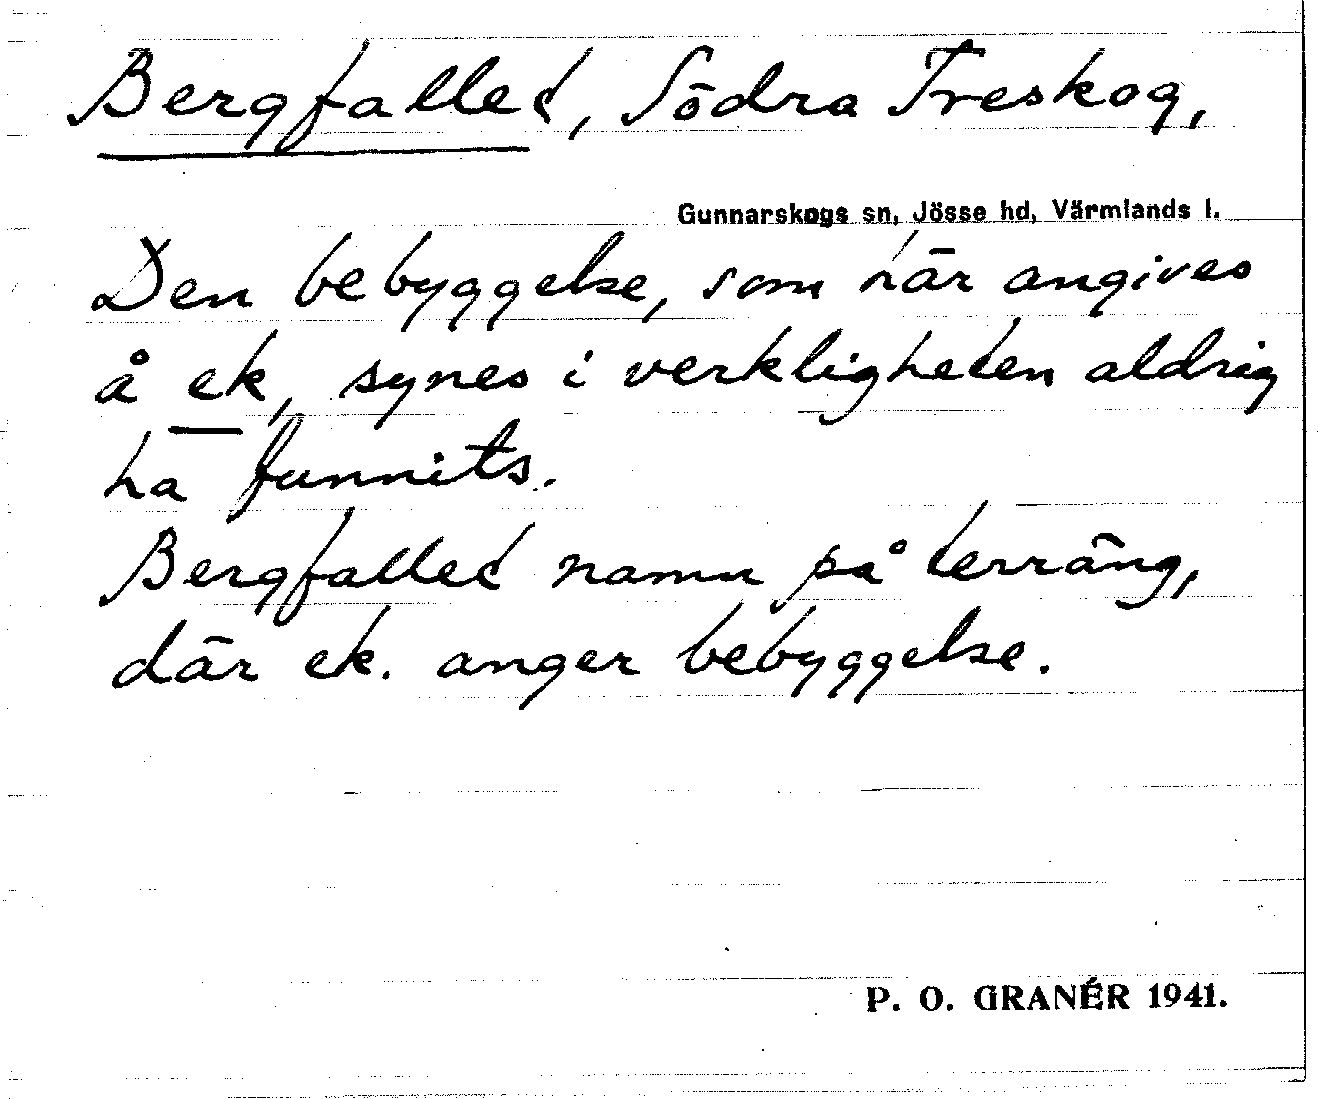 Bergfallet, Södra Treskog,
Gunnarskogs sn, Jösse hd, Värmlands l.
Den bebyggelse, som här angives
å ek, synes i verkligheten aldrig
ha funnits.
Bergfallet namn på terräng,
där ek. anger bebyggelse.
P. O. GRANÉR 1941.